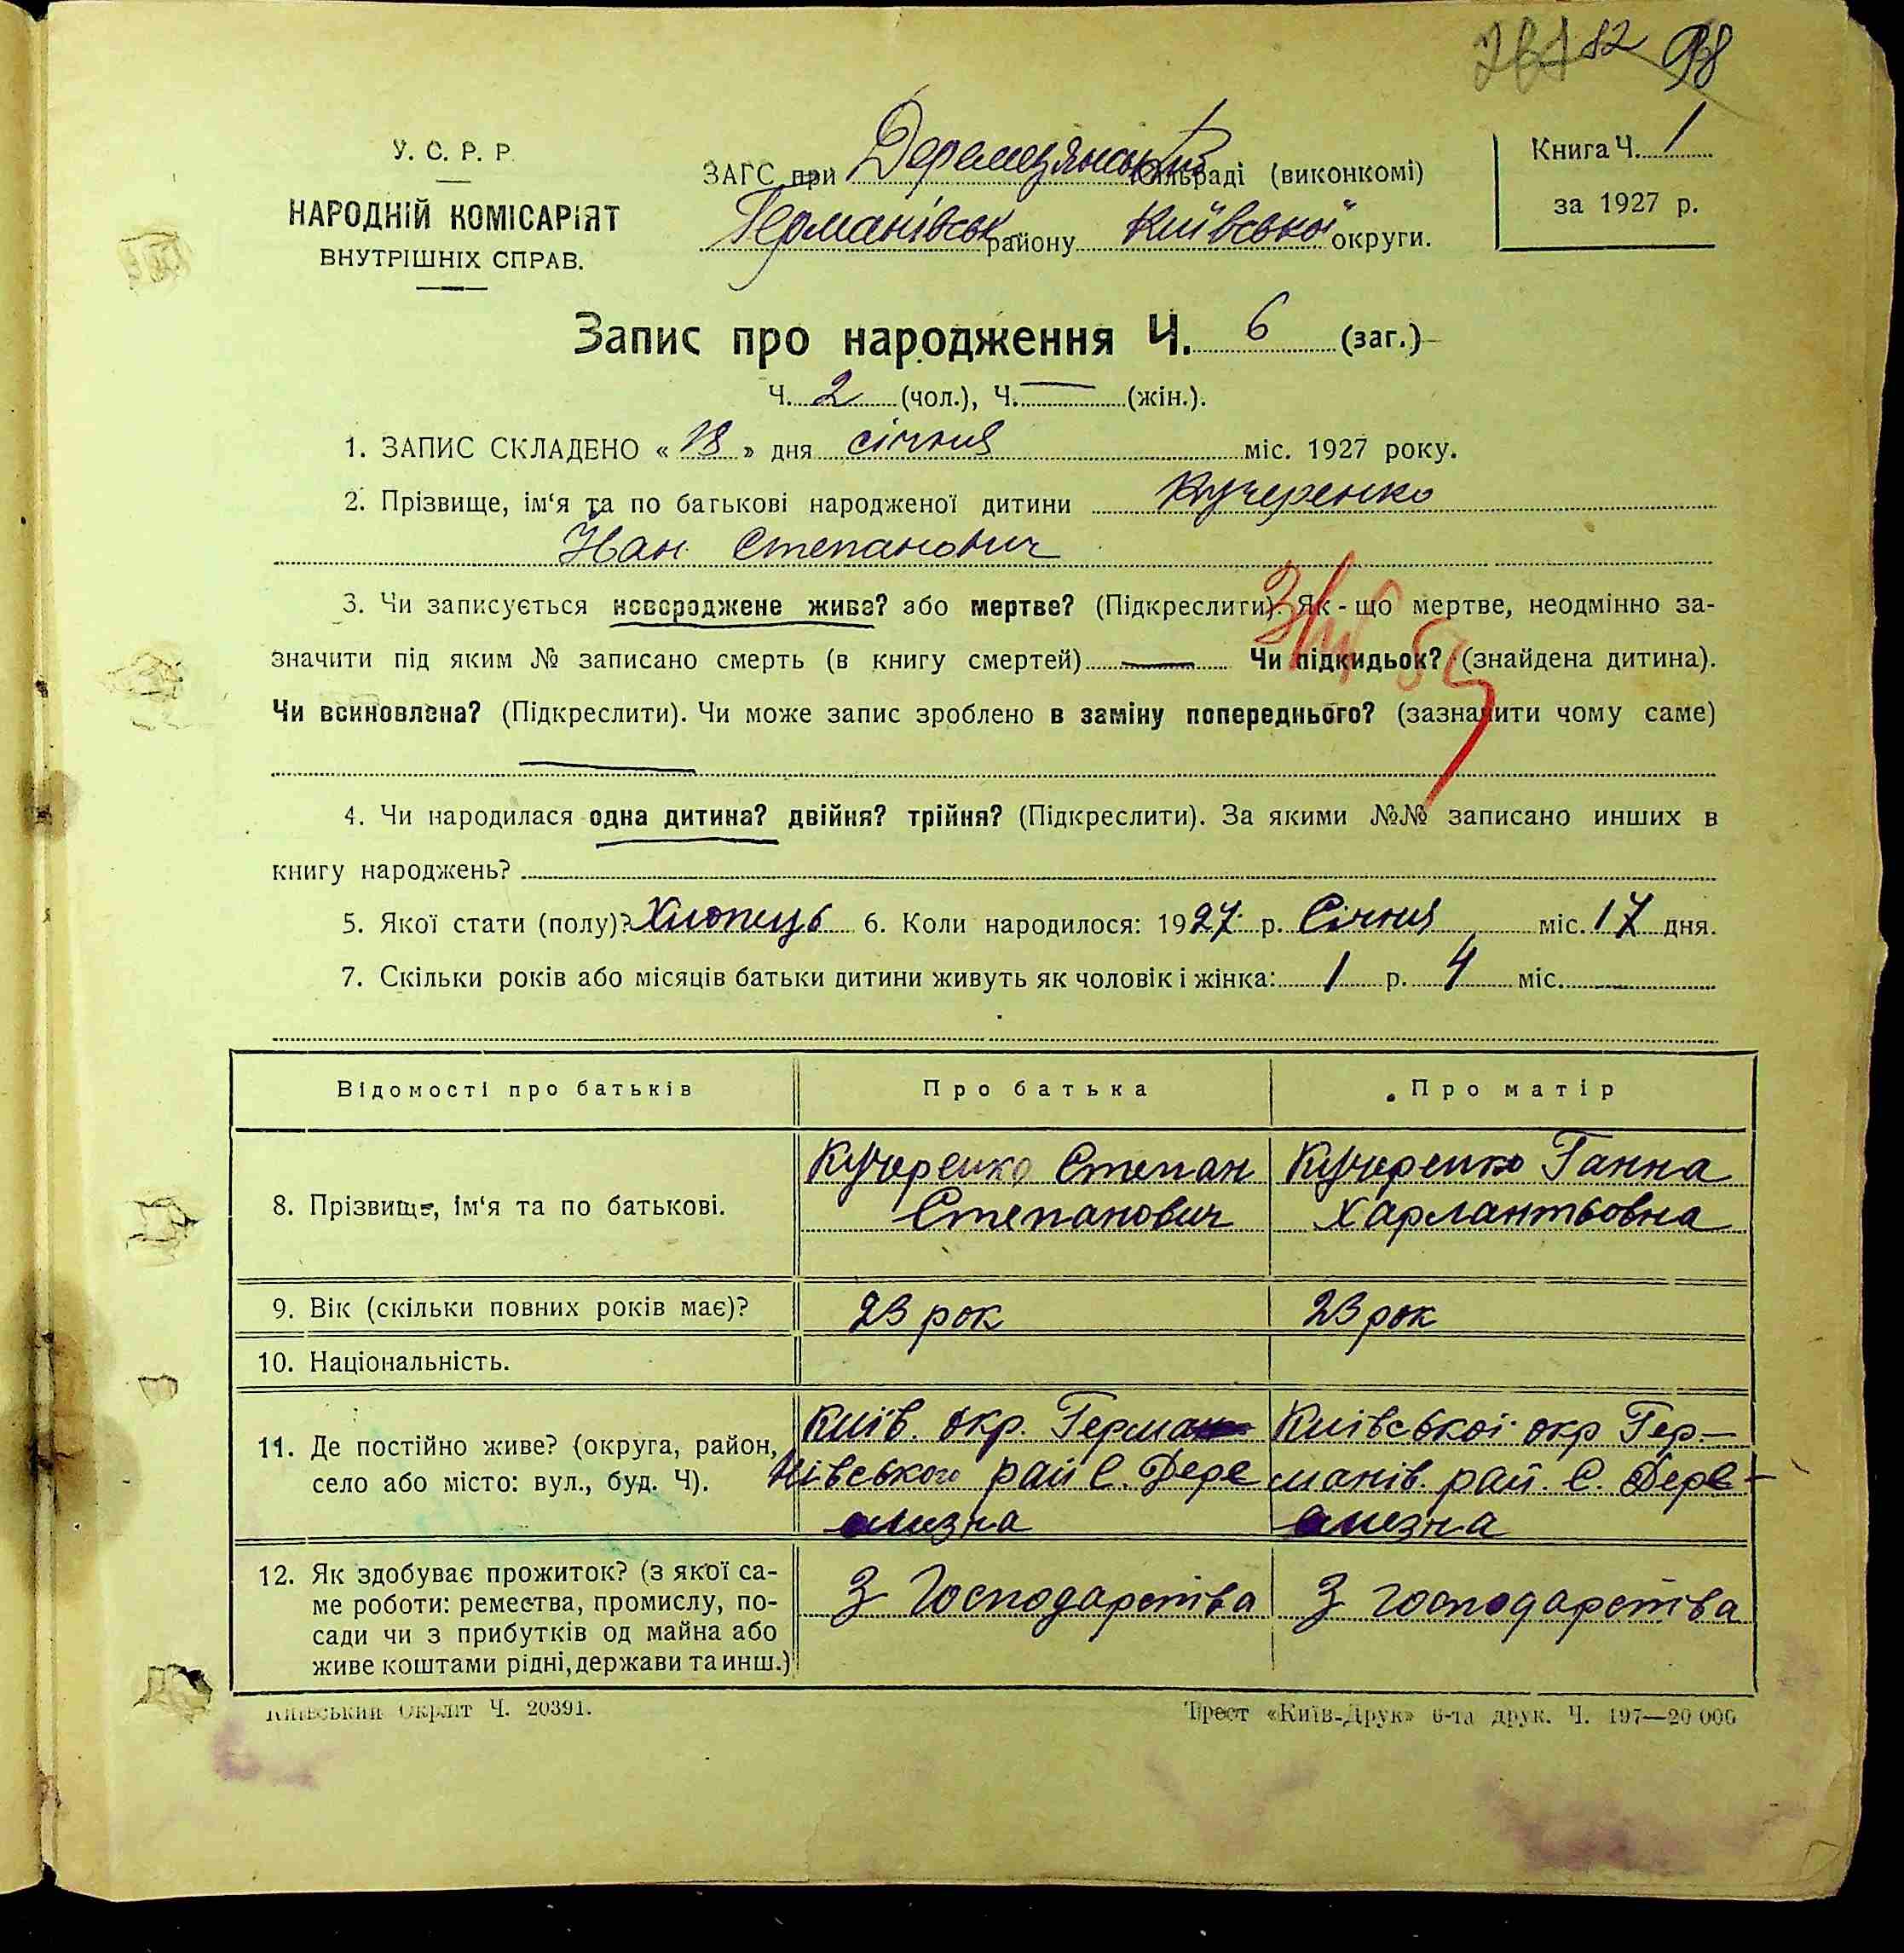 82 98
У. С. Р. Р.
НАРОДНІЙ КОМІСАРІЯТ
ВНУТРІШНІХ СПРАВ.
ЗАГС при Деремезянській сільраді (виконкомі)
Германівськ району Київської округи.
Книга Ч. 1
за 1927 р.
Запис про народження Ч. 6 (заг.)
Ч. 2 (чол.), Ч. — (жін.).
1. ЗАПИС СКЛАДЕНО « 18 » дня січня міс. 1927 року.
2. Прізвище, ім‘я та по батькові народженої дитини Кучеренко
Іван Степанович
3. Чи записується новороджене живе? або мертве? (Підкреслити). Як-що мертве, неодмінно за-
значити під яким № записано смерть (в книгу смертей) — Чи підкидьок? (знайдена дитина).
Чи всиновлена? (Підкреслити). Чи може запис зроблено в заміну попереднього? (зазначити чому саме)
—
4. Чи народилася одна дитина? двійня? трійня? (Підкреслити). За якими №№ записано инших в
книгу народжень?
5. Якої стати (полу)? Хлопець 6. Коли народилося: 1927 р. Січня міс. 17 дня.
7. Скільки років або місяців батьки дитини живуть як чоловік і жінка: 1 р. 4 міс.
Відомості про батьків Про батька Про матір
8. Прізвище, ім‘я та по батькові.
Кучеренко Степан
Степанович
Кучеренко Ганна
Харлантьовна
9. Вік (скільки повних років має)? 23 рок 23 рок
10. Національність.
11. Де постійно живе? (округа, район,
село або місто: вул., буд. Ч).
Київ. окр. Герма
нівського рай С. Дере
мезна
Київської окр Гер-
манів. рай. С. Дере-
мезна
12. Як здобуває прожиток? (з якої са-
ме роботи: ремества, промислу, по-
сади чи з прибутків од майна або
живе коштами рідні, держави та инш.)
З Господарства
З господарства
Київський Окрліт Ч. 20391.
Трест «Київ-Друк» 6-та друк. Ч. 197—20 000